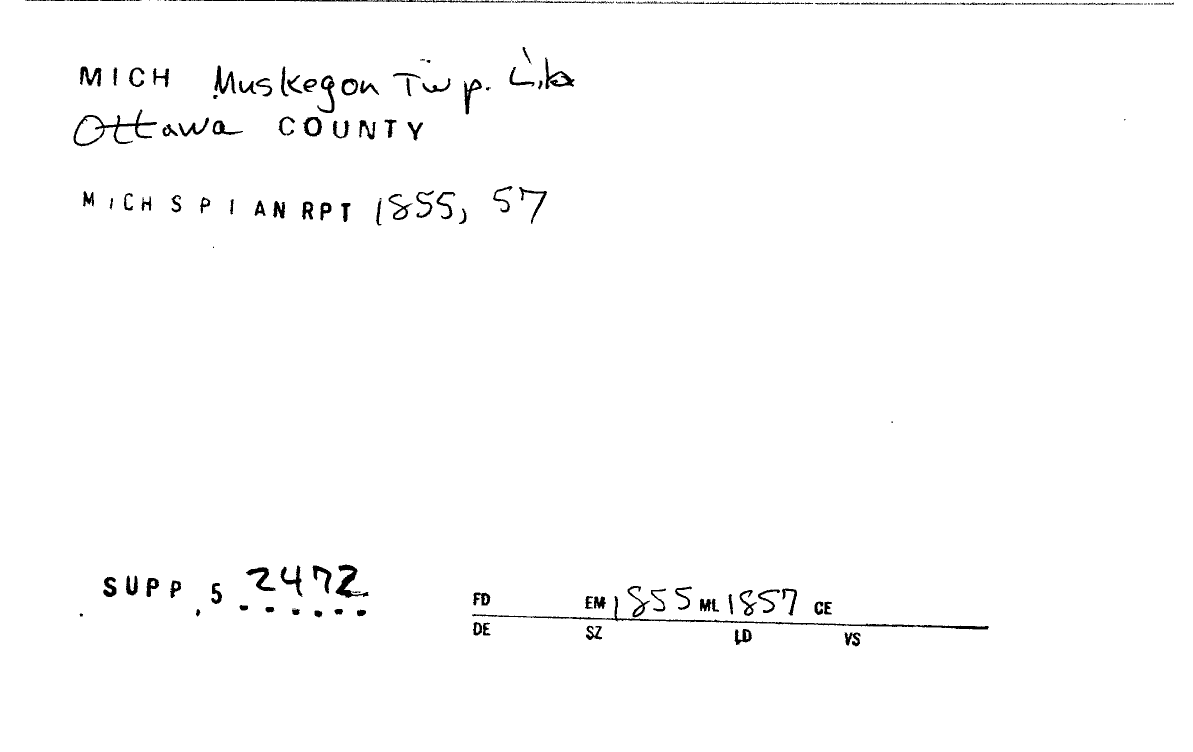 MICH Muskegon Twp. Lib
Ottawa COUNTY
MICH S P I AN RPT 1855, 57
SUPP 5 2472
FD EM 1855 ML 1857 CE
DE SZ LD VS